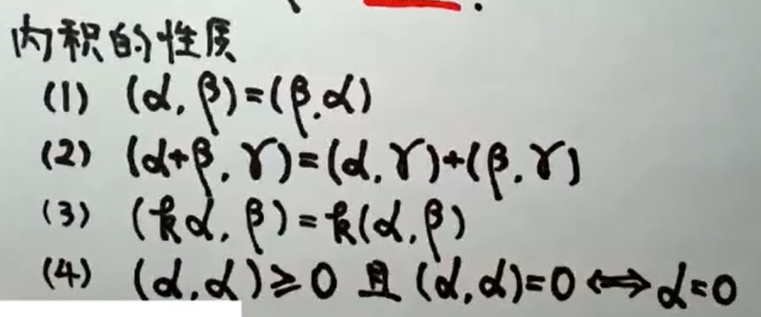 内积的性质
(1) (α, β)=(β,α)
(2) (α+β, γ)=(α, γ)+(β, γ)
(3) (kα, β)=k(α, β)
(4) (α,α)≥0 且 (α,α)=0 ⟺ α=0